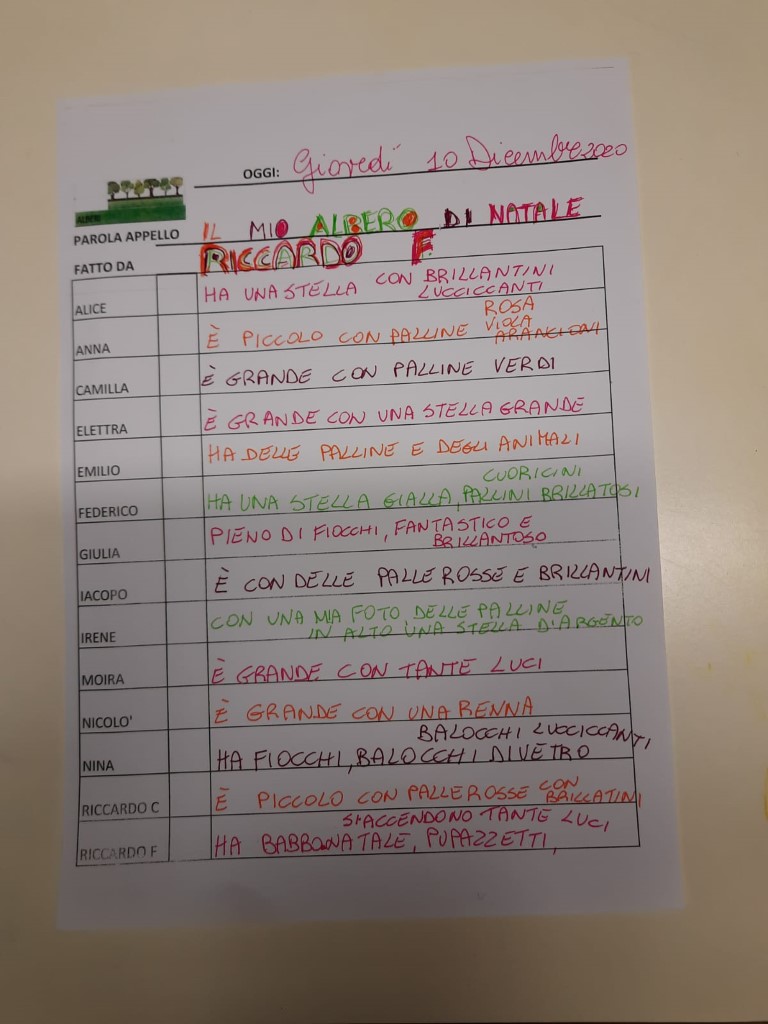 OGGI: Giovedí 10 Dicembre 2020
ALBERI
PAROLA APPELLO IL MIO ALBERO DI NATALE
FATTO DA RICCARDO F.
ALICE HA UNA STELLA CON BRILLANTINI
LUCCICCANTI
ROSA
ANNA È PICCOLO CON PALLINE VIOLA
ARANCIONI
CAMILLA È GRANDE CON PALLINE VERDI
ELETTRA È GRANDE CON UNA STELLA GRANDE
EMILIO HA DELLE PALLINE E DEGLI ANIMALI
CUORICINI
FEDERICO HA UNA STELLA GIALLA, PALLINI BRILLATOSI
GIULIA PIENO DI FIOCCHI, FANTASTICO E
BRILLANTOSO
IACOPO È CON DELLE PALLE ROSSE E BRILLANTINI
IRENE CON UNA MIA FOTO, DELLE PALLINE
IN ALTO UNA STELLA D'ARGENTO
MOIRA È GRANDE CON TANTE LUCI
NICOLO' È GRANDE CON UNA RENNA
BALOCCHI LUCCICCANTI,
NINA HA FIOCCHI, BALOCCHI DI VETRO
RICCARDO C È PICCOLO CON PALLE ROSSE CON
BRILLATINI
SI ACCENDONO TANTE LUCI,
RICCARDO F HA BABBO NATALE, PUPAZZETTI,